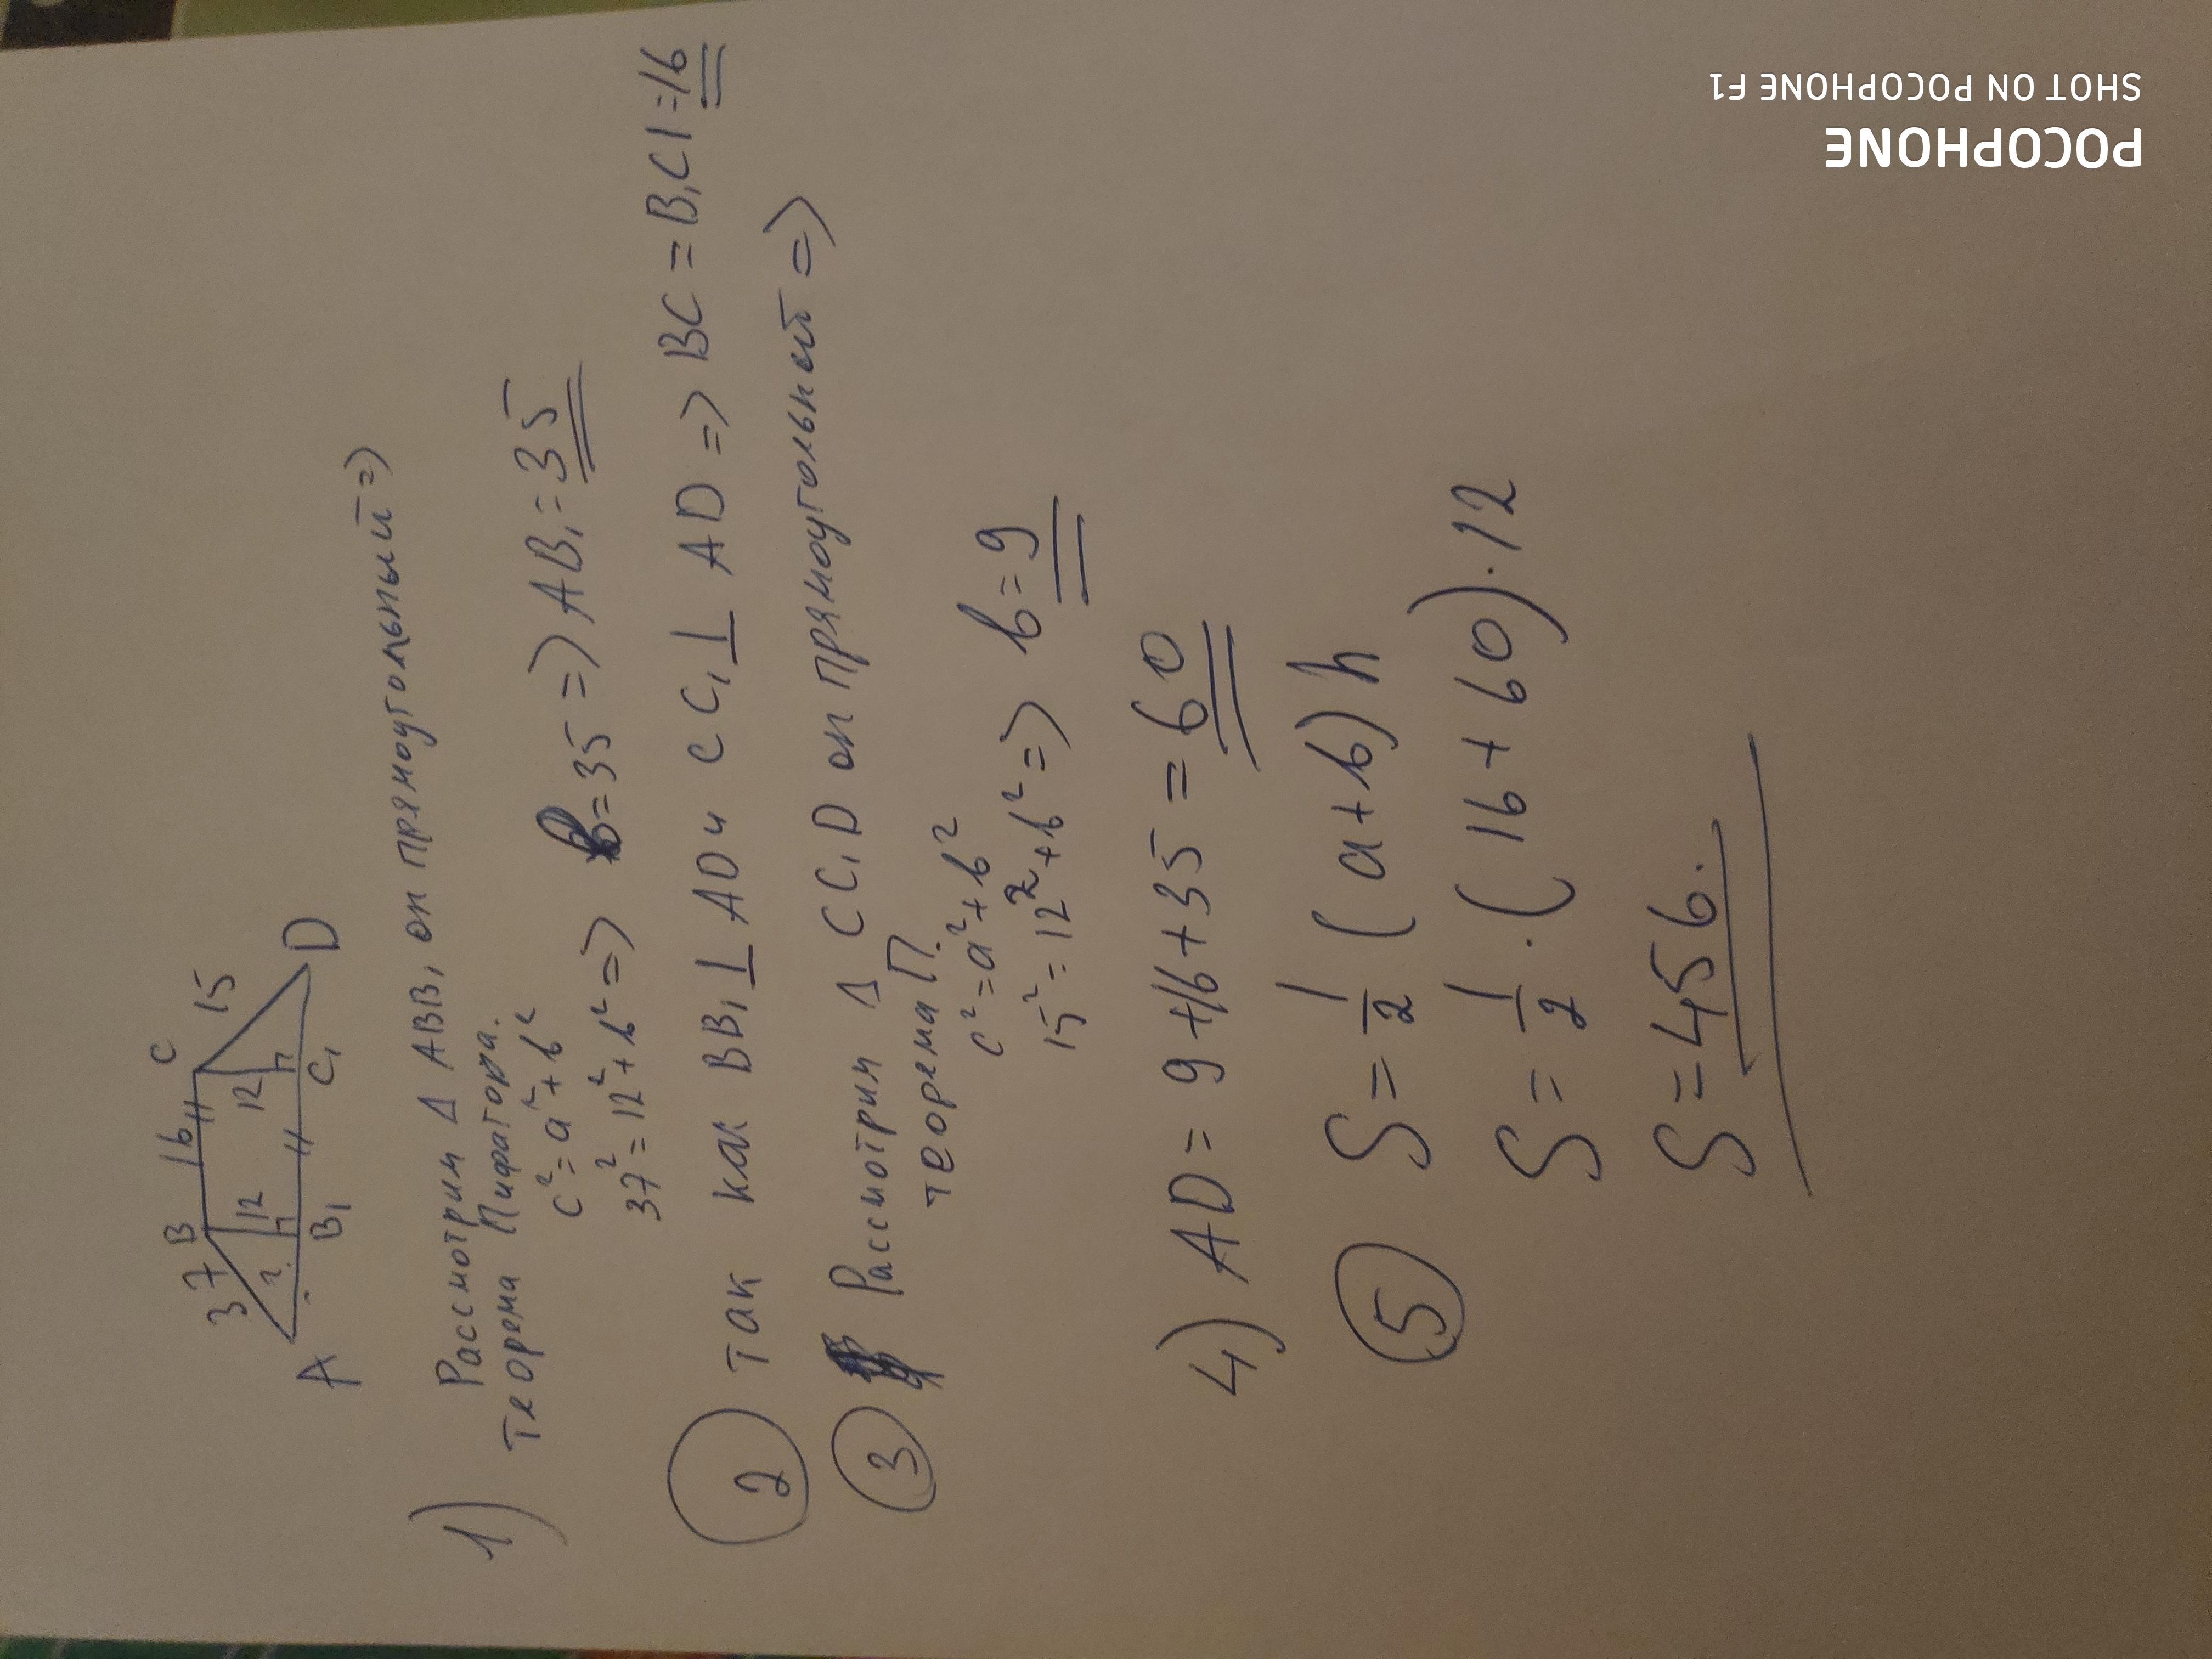 B 16 C
37 12 12 15
?
A B₁ C₁ D
1) Рассмотрим Δ ABB₁ он прямоугольный =>
теорема Пифагора.
c² = a² + b²
37² = 12² + b² => b = 35 => AB₁ = 35
2 так как BB₁ ⊥ AD и CC₁ ⊥ AD => BC = B₁C1 = 16
3 Рассмотрим Δ CC₁D он прямоугольный =>
теорема П.
c² = a² + b²
15² = 12² + b² => b = 9
4) AD = 9 + 16 + 35 = 60
5 S = 1/2 (a + b) h
S = 1/2 · (16 + 60) · 12
S = 456.
SHOT ON POCOPHONE F1
POCOPHONE